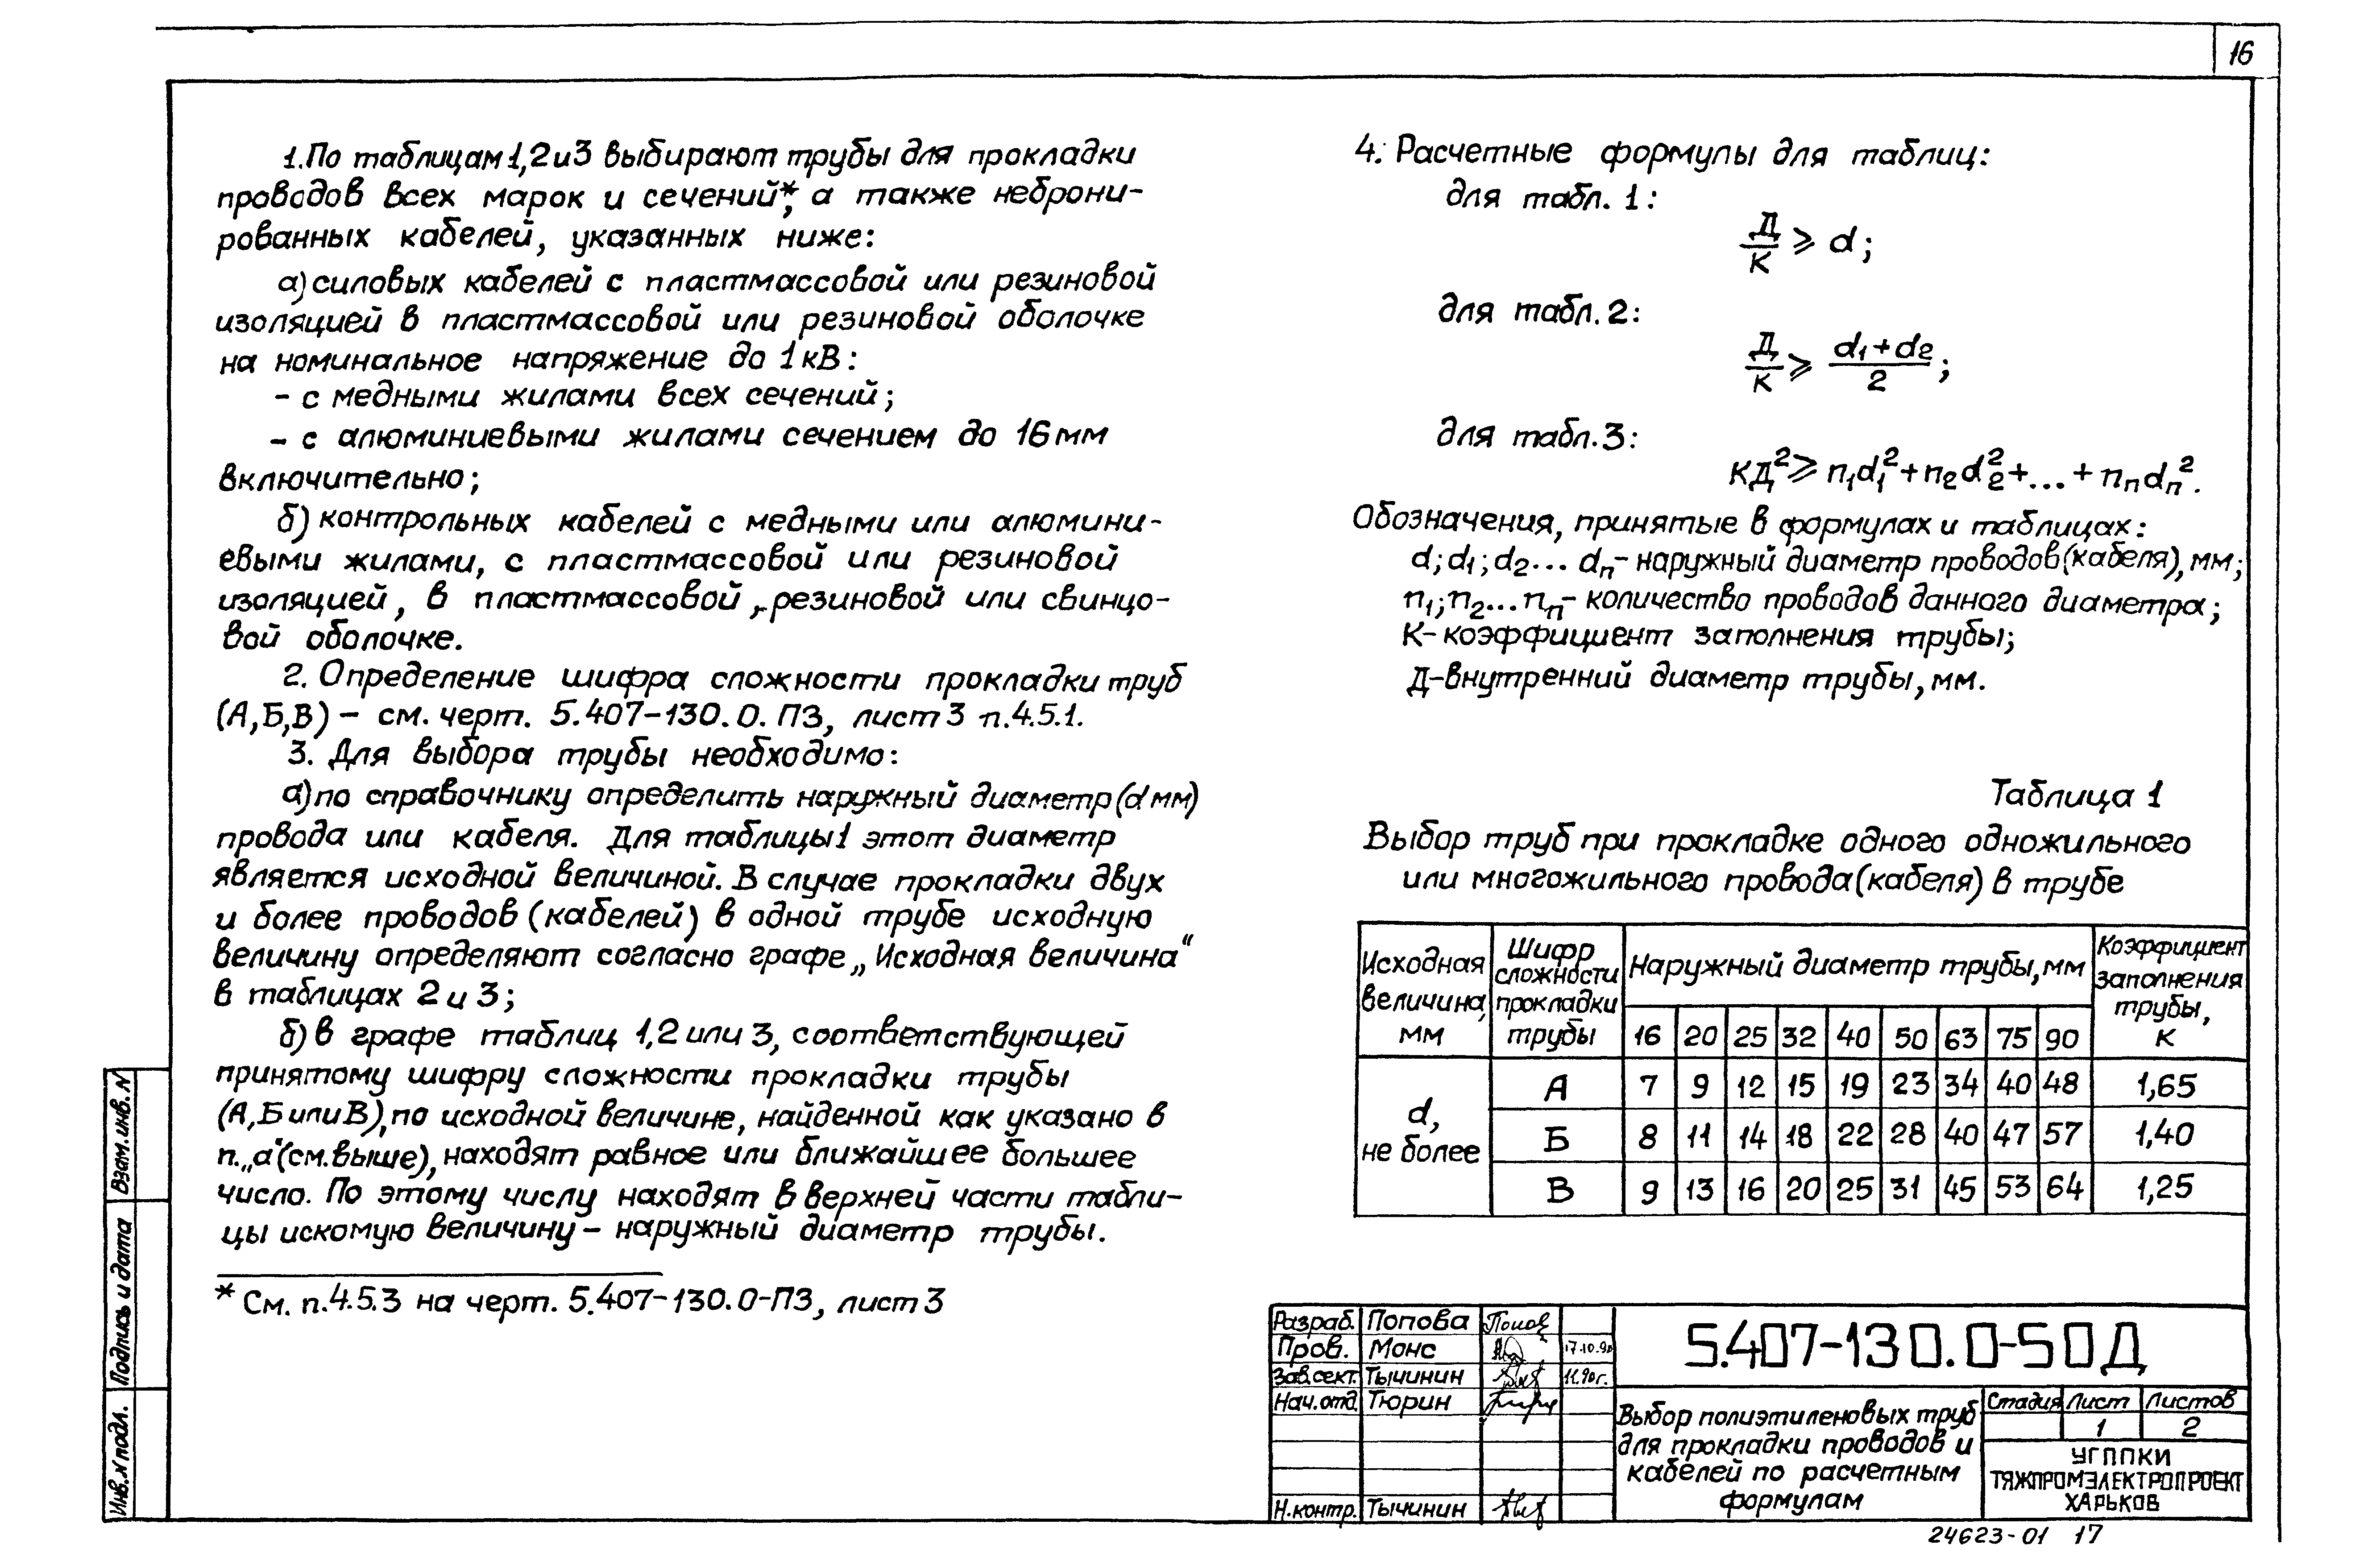 16
1. По таблицам 1,2 и 3 выбирают трубы для прокладки
проводов всех марок и сечений*, а также неброни-
рованных кабелей, указанных ниже:
а) силовых кабелей с пластмассовой или резиновой
изоляцией в пластмассовой или резиновой оболочке
на номинальное напряжение до 1кВ:
- с медными жилами всех сечений;
- с алюминиевыми жилами сечением до 16мм
включительно;
б) контрольных кабелей с медными или алюмини-
евыми жилами, с пластмассовой или резиновой
изоляцией, в пластмассовой, резиновой или свинцо-
вой оболочке.
2. Определение шифра сложности прокладки труб
(А,Б,В) - см. черт. 5.407-130.0. ПЗ, лист 3 п.4.5.1.
3. Для выбора трубы необходимо:
а) по справочнику определить наружный диаметр (d мм)
провода или кабеля. Для таблицы 1 этот диаметр
является исходной величиной. В случае прокладки двух
и более проводов (кабелей) в одной трубе исходную
величину определяют согласно графе „Исходная величина“
в таблицах 2 и 3;
б) в графе таблиц 1,2 или 3, соответствующей
принятому шифру сложности прокладки трубы
(А,Б или В), по исходной величине, найденной как указано в
п.„а“ (см. выше), находят равное или ближайшее большее
число. По этому числу находят в верхней части табли-
цы искомую величину - наружный диаметр трубы.
* См. п.4.5.3 на черт. 5.407-130.0-ПЗ, лист 3
4. Расчетные формулы для таблиц:
для табл. 1:
Д/К ⩾ d;
для табл. 2:
Д/К ⩾ (d1+d2)/2;
для табл. 3:
КД² ⩾ n1d1²+n2d2²+...+nпdп².
Обозначения, принятые в формулах и таблицах:
d; d1; d2... dп - наружный диаметр проводов (кабеля), мм;
n1; n2... nп - количество проводов данного диаметра;
К - коэффициент заполнения трубы;
Д - внутренний диаметр трубы, мм.
Таблица 1
Выбор труб при прокладке одного одножильного
или многожильного провода (кабеля) в трубе
Исходная величина, мм | Шифр сложности прокладки трубы | Наружный диаметр трубы, мм | Коэффициент заполнения трубы, К
16 20 25 32 40 50 63 75 90
d, не более
А 7 9 12 15 19 23 34 40 48 1,65
Б 8 11 14 18 22 28 40 47 57 1,40
В 9 13 16 20 25 31 45 53 64 1,25
Взам. инв. N
Подпись и дата
Инв. N подл.
Разраб. Попова
Пров. Монс 17.10.90
Зав.сект. Тычинин 11.90г.
Нач.отд. Тюрин
Н.контр. Тычинин
5.407-130.0-50Д
Выбор полиэтиленовых труб
для прокладки проводов и
кабелей по расчетным
формулам
Стадия Лист Листов
1 2
УГППКИ
ТЯЖПРОМЭЛЕКТРОПРОЕКТ
ХАРЬКОВ
24623-01 17